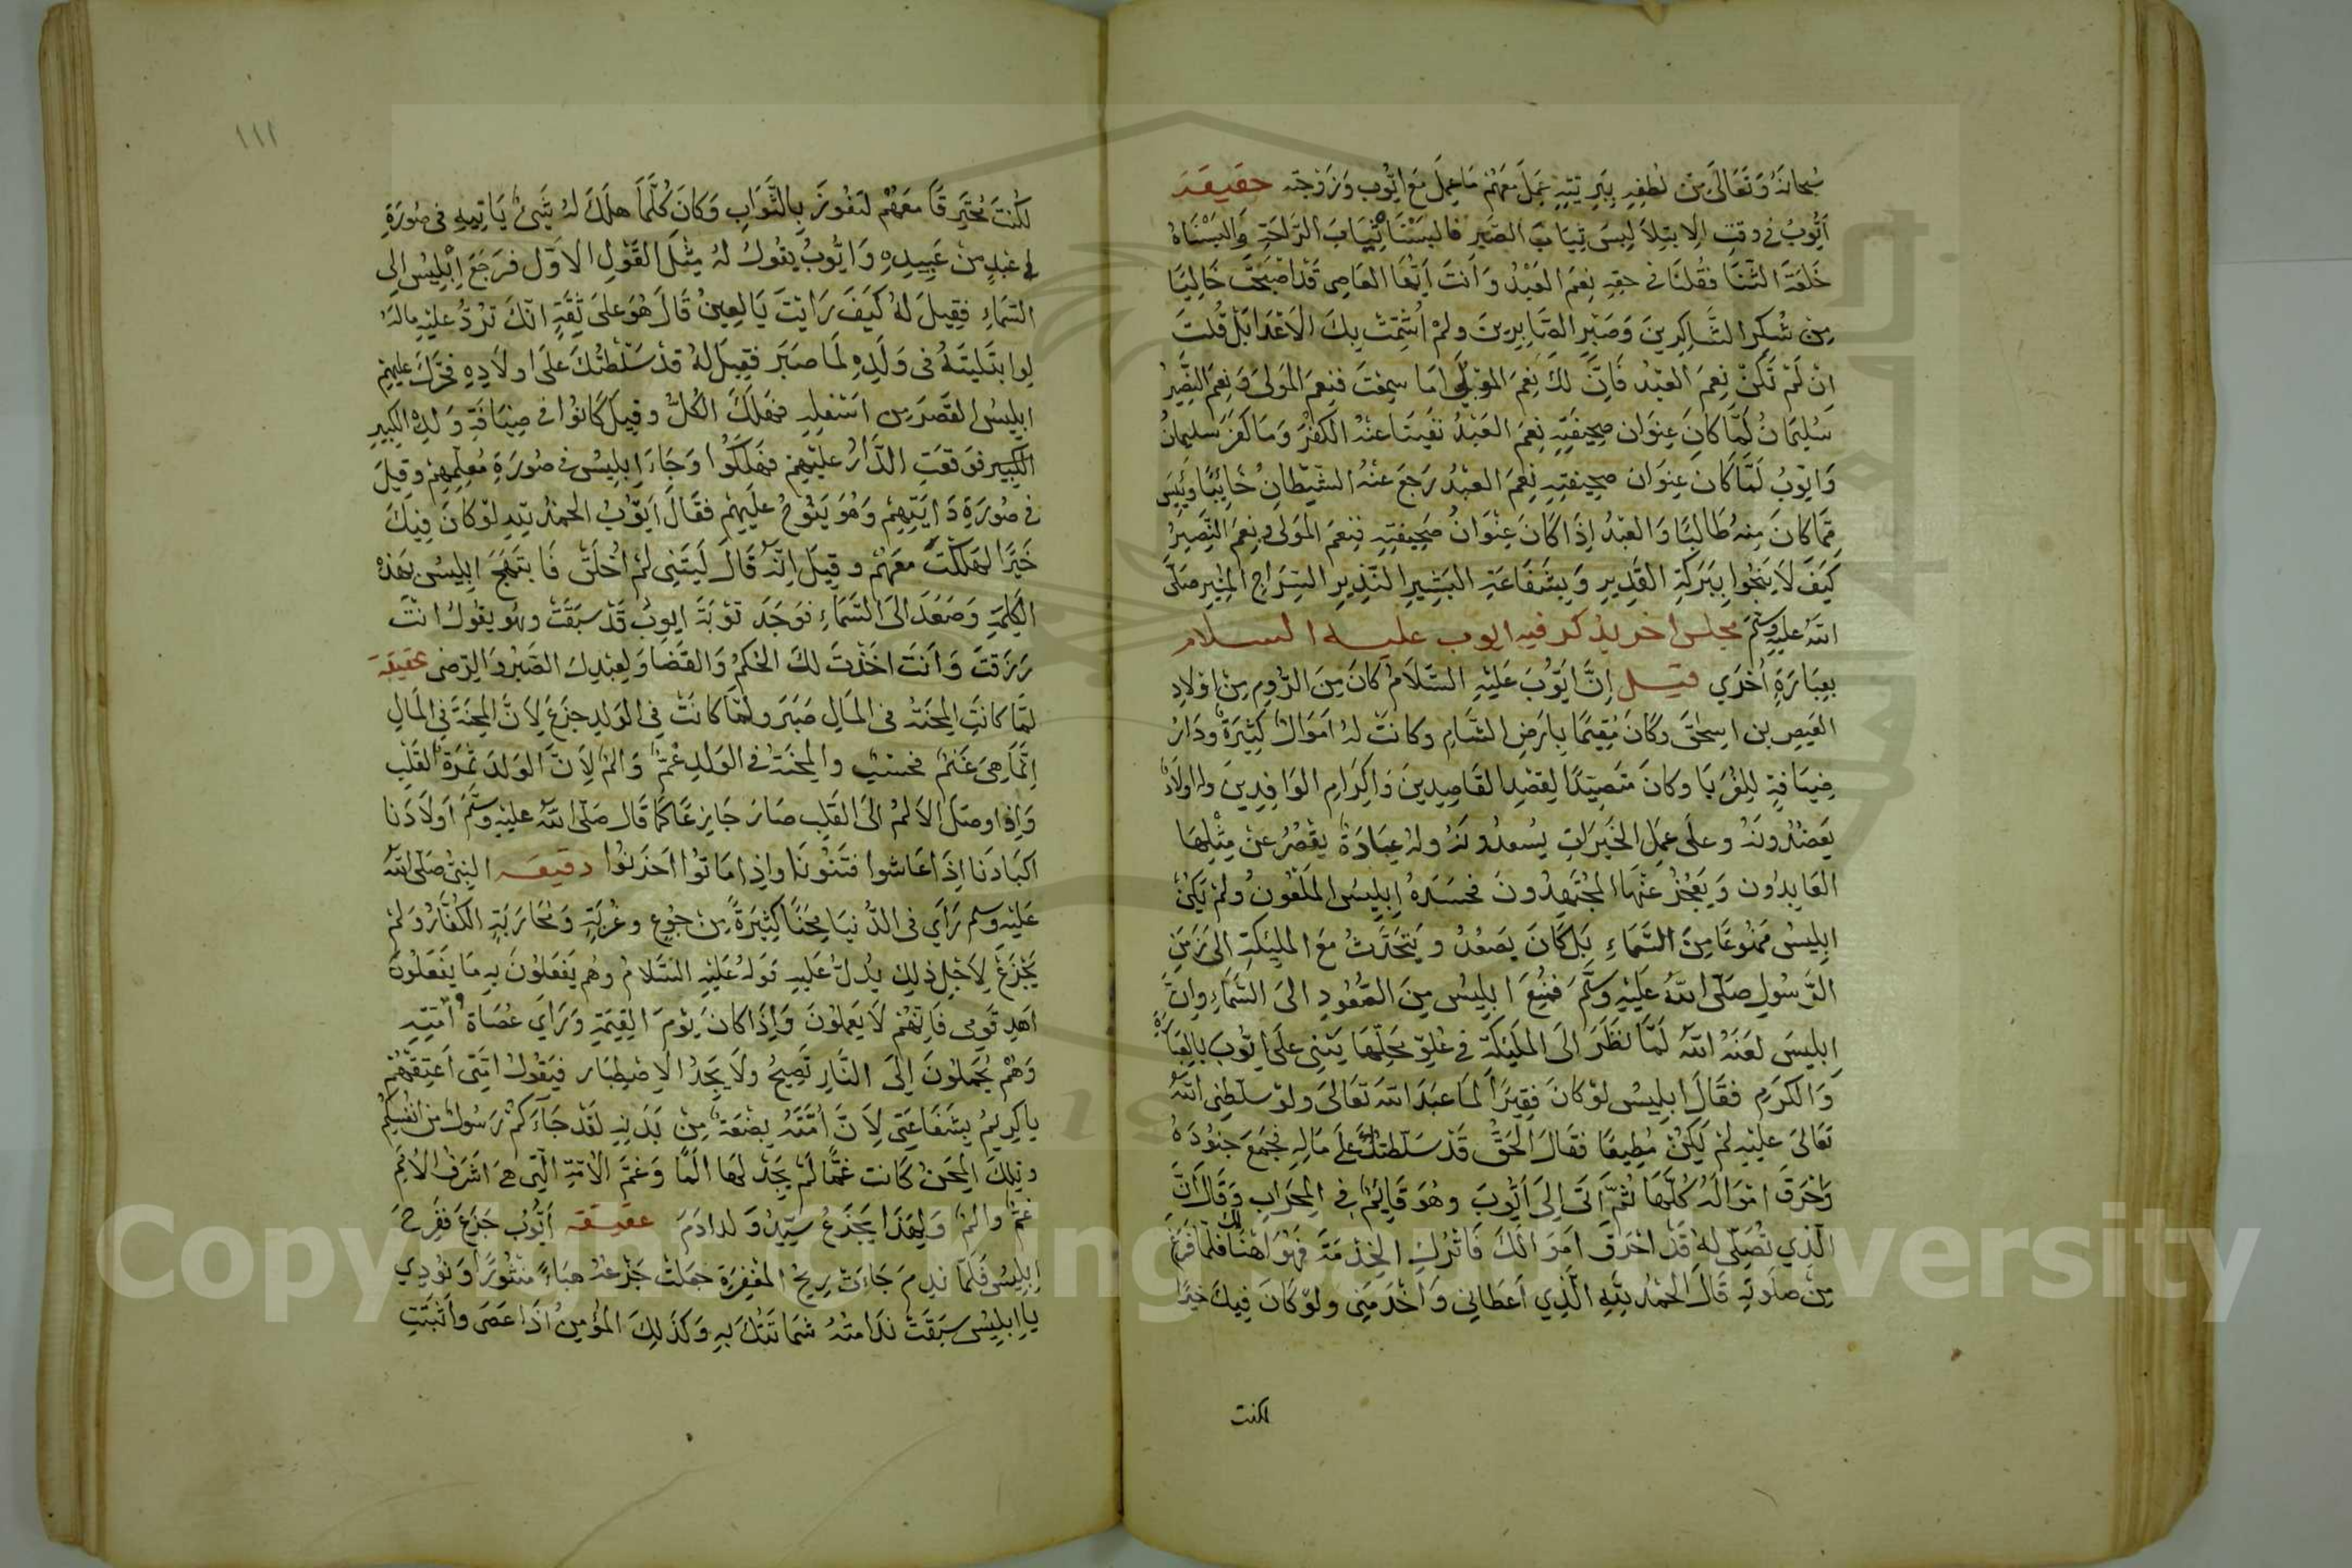 سُبحانَهُ وَتَعَالَى مِنْ لُطْفِهِ بِبَرِيَّتِهِ عَمِلَ مَعَهُمْ مَا عَمِلَ مَعَ اَيُّوب وَزَوْجَتِهِ حقيقة
اَيُّوبُ فى وقتِ الابتِلاَ لِبسَ ثِيَابَ الصَّبرِ فالبَسْنَا ثِيَابَ الرَّاحَةِ وَالبَسْنَاهُ
خَلعَةَ الثَّنَا فقُلنَا فى حقِهِ نِعمَ العَبْدُ وَاَنتَ اَيُّهَا العَاصِى قَدْ اَصْبَحْتَ خَالِيًا
مِن شُكرِ الشَّاكِرينَ وَصَبْرِ الصَّابِرينَ ولَمْ اُشْمِتْ بِكَ الاَعْدَا بَلْ قُلتَ
اِنْ لَمْ تَكُنْ نِعمَ العَبْدُ فَاِنَّ لكَ نِعْمَ المَوْلَى اَمَا سمِعْتَ فنِعمَ المَولَى وَنِعمَ النَّصِيرُ
سُلَيمَانُ لَمَّا كانَ عِنوَان صحِيفَتِهِ نِعمَ العَبْدُ نَفَينَا عنهُ الكُفْرَ وَمَا كَفَرَ سُليمانُ
وَاَيُّوبُ لَمَّا كَانَ عِنوَان صحِيفتِهِ نِعْمَ العَبْدُ رَجَعَ عَنْهُ الشَّيْطَانِ خَائِبًا وَيَئِسَ
مِمَّا كانَ مِنهُ طَالِبًا وَالعَبْدُ اِذَا كَانَ عِنْوَانُ صَحِيفتِهِ فنِعمَ المَولى ونِعمَ النَّصِيرُ
كَيفَ لاَ يَنجُوا بِبَرَكَةِ القَدِيرِ وَبِشَفَاعَةِ البَشِيرِ النَّذِيرِ السِّرَاجِ المُنِيرِ صَلَّى
اللهُ عليهِ وسلَّمَ مجلس اخر يذكر فيه ايوب عليه السلام
بِعِبَارَةٍ اُخْرَي قيل اِنَّ اَيُّوبَ عَلَيْهِ السَّلاَمُ كانَ مِنَ الرُّومِ مِنْ اَوْلادِ
العَيصِ بن اسحقَ وكَانَ مُقِيمًا بِاَرضِ الشَّامِ وكَانَتْ لهُ اَموَالٌ كَثِيرَةٌ ودَارُ
ضِيَافَةٍ لِلغُرَبَا وكانَ متَصِيّدًا لِقَصْدِ القَاصِدِينَ وَاِكرَامِ الوَافِدِينَ ولهُ اولَادٌ
يَعضُدُونَهُ وعلَى عمَلِ الخَيرَاتِ يُسعدُونَهُ ولهُ عِبَادَةٌ يَقصُرُ عَنْ مِثْلِهَا
العَابِدُون وَيَعْجُزُ عَنْهَا المُجتَهِدُونَ فحَسَدَهُ اِبلِيسُ المَلْعُونُ ولَمْ يَكُنْ
ابليسُ مَمنُوعًا مِنَ السَّمَاءِ بَلْ كَانَ يَصعُدُ ويَتحَدَّثُ مَعَ المليكةِ الى زَمَنِ
الرَّسُولِ صلَّى اللهُ عَلَيْهِ وَسَلَّمَ فمُنِعَ ابليسُ مِنَ الصُّعُودِ الىَ السَّمَاءِ واِنَّ
اِبلِيسَ لعَنَهُ اللهُ لَمَّا نَظَرَ الىَ المَليكَةِ فى عُلوِّ محَلِّهَا يَثنِى علَى اَيُّوبَ بِالعِبَادَةِ
وَالكَرَمِ فقَالَ اِبلِيسُ لوْ كَانَ فقِيرًا لمَا عبَدَ اللهَ تَعَالَى ولوْ سلَّطنِى اللهُ
تَعَالىَ عليْهِ لَمْ يَكُنْ مُطِيعًا فقَالَ الحَقُّ قَدْ سَلَّطتُكَ علَى مَالِهِ فجَمَعَ جنُودَهُ
وَاَحْرَقَ اَمْوَالَهُ كُلَّهَا ثُمَّ اَتَى اِلىَ اَيُّوبَ وهُوَ قَايِمٌ فى المِحرَابِ وَقَالَ اَنَّ
الَّذِي تُصَلِّى لهُ قَدْ اَحرَقَ اَموَالَكَ فَاترُكِ الخِدْمَةَ فهُوَ هُنَا لكَ فلَمَّا فَرَغَ
مِنْ صلَوتِهِ قَالَ الحَمْدُ لِلّهِ الَّذِي اَعطَانِي وَاَخَذَ مِنِى ولوْ كَانَ فِيكَ خَيْرًا
لكنت
١١١
لكُنتَ مُحتَرِقًا مَعَهُمْ لتَفُوزَ بِالثَّوَابِ وَكانَ كُلَّمَا هلَكَ لهُ شَيءٌ يَاتِيهِ فى صُورَةِ
عَبدٍ مِنْ عَبِيدِهِ وَايُّوبُ يقُولُ لهُ مِثْلَ القَوْلِ الاَوّلِ فرَجَعَ اِبلِيسُ اِلى
السَّمَاءِ فقِيلَ لهُ كَيفَ رَايْتَ يَا لعِينُ قَالَ هُوَ علىَ ثِقَةٍ انّكَ تَرُدُّ عليْهِ مالَهُ
لوا بتَليتَهُ فى وَلَدِهِ لَمَا صبَرَ فقِيلَ لهُ قدْ سَلَّطتُكَ علَى اولاَدِهِ فحَرَّكَ عليهِمُ
ابليسُ القَصْرَ مِن اَسْفلِهِ فهَلَكَ الكُلُّ وقِيلَ كَانُوا فى ضِيَافَةِ وَلدِهِ الكَبِيرِ
الكَبِير فوَقعَتِ الدَّارُ عليْهِمْ فهَلَكُوا وَجَاءَ اِبلِيسُ فى صُورَةِ مُعلِّمِهِمْ وقيلَ
فى صُورَةِ دَايَتِهِمْ وَهُوَ يَنُوحُ عليَهِمْ فقَالَ اَيُّوبُ الحَمْدُ للهِ لوْ كَانَ فِيكَ
خَيْرًا لهَلكْتَ معَهُمْ وقيلَ اِنَّهُ قَالَ لَيتَنِى لَمْ اُخلَقْ فَابتَهَجَ ابليسُ بهَذِهِ
الكَلِمَةِ وَصَعَدَ الىَ السَّمَاءِ فوَجَدَ تَوْبَةَ ايوبُ قَدْ سبَقَتْ وهو يقولُ انْتَ
رَزَقتَ وَاَنتَ اخَذْتَ لكَ الحُكمُ وَالقَضَا وَلِعَبْدِكَ الصَّبْرُ وَالرِّضَى حقيقة
لمَّا كانَتِ المِحنَةُ فى المَالِ صَبَرَ ولمَّا كانَتْ فِي الوَلدِ جزَعَ لاَنَّ المِحنَةَ فِي المَالِ
اِنَّمَا هِىَ غَنَمٌ فحسبُ والمِحنَةُ فى الوَلدِ غَمٌّ وَالَمٌ لاَنَّ الوَلدَ ثمَرَةُ القَلْبِ
وَاِذا وصَلَ الاَلمُ الىَ القَلبِ صَارَ جَازِعًا كمَا قَالَ صَلَّى اللهُ عليْهِ وسَلَّمَ اَولاَدُنَا
اَكبَادُنا اِذَا عَاشوا فتَنُونَا واِذا مَاتُوا اَحزَنُوا دقيقة النبىُّ صَلَّى اللهُ
عليْهِ وسلم رَاَي فى الدُّنيَا مِحَنًا كَثِيرَةً مِنْ جُوعٍ وغُربَةٍ وَمُحَارَبَةِ الكُفَّارُ وَلَمْ
يَجْزَعْ لاَجْلِ ذلِكَ يَدُلُّ عليهِ قَولهُ عَليْهِ السَّلامُ وهُم يَفعَلُونَ بِهِ مَا يَفعَلُونَ
اهدِ قَومِى فَانّهُمْ لاَ يَعلمُونَ وَاِذَا كانَ يَوْمَ القِيمَةِ وَرَاَي عُصَاةُ اُمَّتِهِ
وَهُمْ يُحمَلُونَ اِلىَ النَّارِ تَصِيحُ ولاَ يَجِدُ الاِصْطِبَار فيَقُولُ اُمَّتِى اَعتِقْهُمْ
يا كَرِيمُ بِشَفَاعَتِى لاَنَّ اُمَّتَهُ بِضْعَةٌ مِنْ بَدَنِهِ لَقَدْ جَاءَكُمْ رَسُولٌ مِنْ انفُسِكُمْ
وتِلكَ المِحَنْ كَانت غمًّا لَمْ يَجِدْ لهَا اَلَمًا وَغمَّ الاُمَّةِ الَّتِى هِىَ اَشرَفُ الاُمَمِ
غمٌّ والمٌ وَلِهَذَا يَجْزَعُ سيِّدُ وَلد ادَمَ حقيقة اَيُّوبُ جَزَعَ فَفَرِحَ
اِبلِيسُ فَلمَّا ندِمَ جَاءَتْ رِيحُ المغْفِرَةِ جعَلتْ جَزعَهُ هبَاءً منثُورًا وَنُودِي
يا اِبليسُ سبَقَتْ نَدَامتهُ شمَاتَتَكَ بِهِ وَكَذَلِكَ المُؤمِنُ اذَا عَصَى واثبَتَتِ